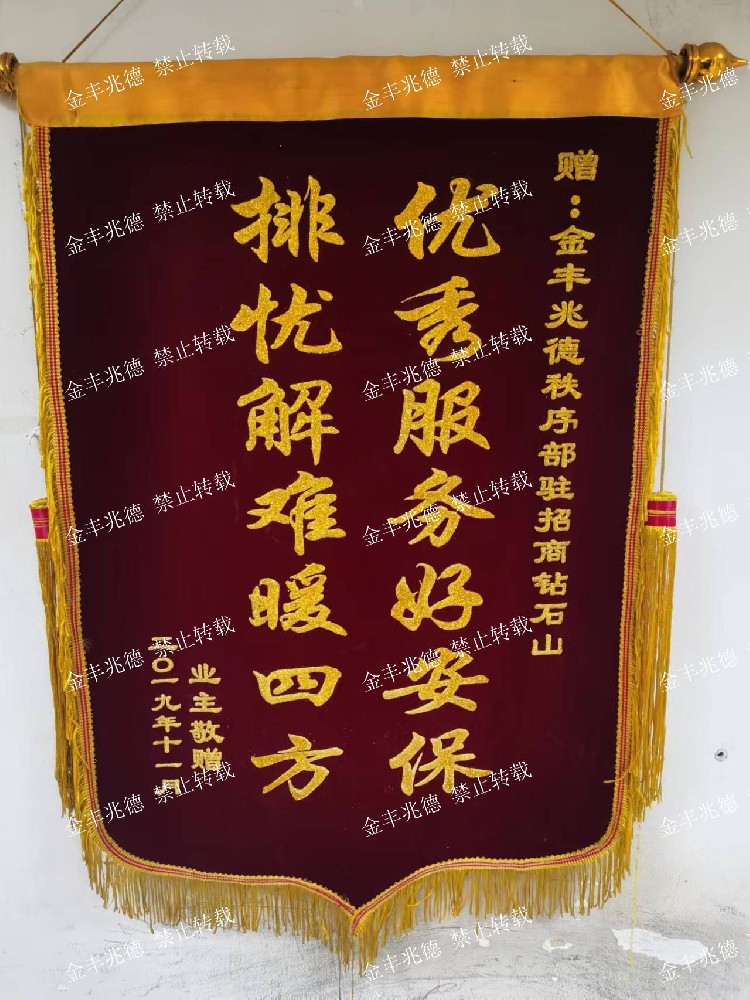 赠：金丰兆德秩序部驻招商钻石山
优秀服务好安保
排忧解难暖四方
业主敬赠
二〇一九年十一月
金丰兆德 禁止转载
金丰兆德 禁止转载
金丰兆德
金丰兆德 禁止转载
金丰兆德 禁止转载
金丰兆德
金丰兆德 禁止转载
金丰兆德 禁止转载
金丰兆德
金丰兆德 禁止转载
金丰兆德 禁止转载
金丰兆德
金丰兆德 禁止转载
金丰兆德 禁止转载
金丰兆德
金丰兆德 禁止转载
金丰兆德 禁止转载
金丰兆德
金丰兆德 禁止转载
金丰兆德 禁止转载
金丰兆德